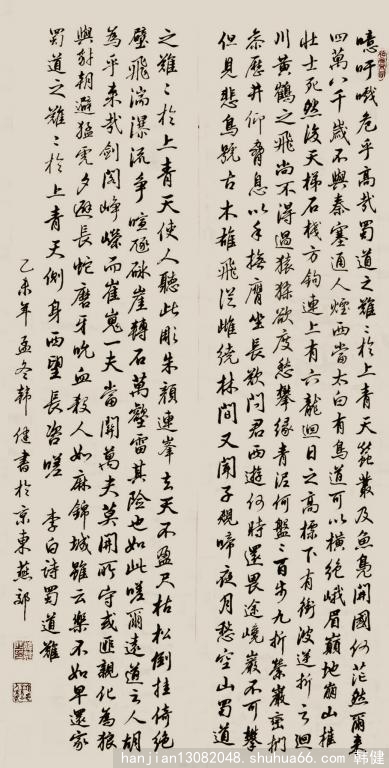 噫吁嚱危乎高哉蜀道之難〻於上青天蠶叢及魚鳧開國何茫然爾來
四萬八千歲不與秦塞通人煙西當太白有鳥道可以橫絕峨眉巔地崩山摧
壯士死然後天梯石棧方鉤連上有六龍迴日之高標下有衝波逆折之迴
川黃鶴之飛尚不得過猿猱欲度愁攀緣青泥何盤〻百步九折縈巖巒捫
參歷井仰脅息以手撫膺坐長歎問君西遊何時還畏途巉巖不可攀
但見悲鳥號古木雄飛從雌繞林間又聞子規啼夜月愁空山蜀道
之難〻於上青天使人聽此彫朱顏連峯去天不盈尺枯松倒挂倚絕
壁飛湍瀑流爭喧豗砯崖轉石萬壑雷其險也如此嗟爾遠道之人胡
為乎來哉劍閣崢嶸而崔嵬一夫當關萬夫莫開所守或匪親化為狼
與豺朝避猛虎夕避長蛇磨牙吮血殺人如麻錦城雖云樂不如早還家
蜀道之難〻於上青天側身西望長咨嗟 李白詩蜀道難
乙未年孟冬韓健書於京東燕郊
hanjian13082048.shuhua66.com 韩健